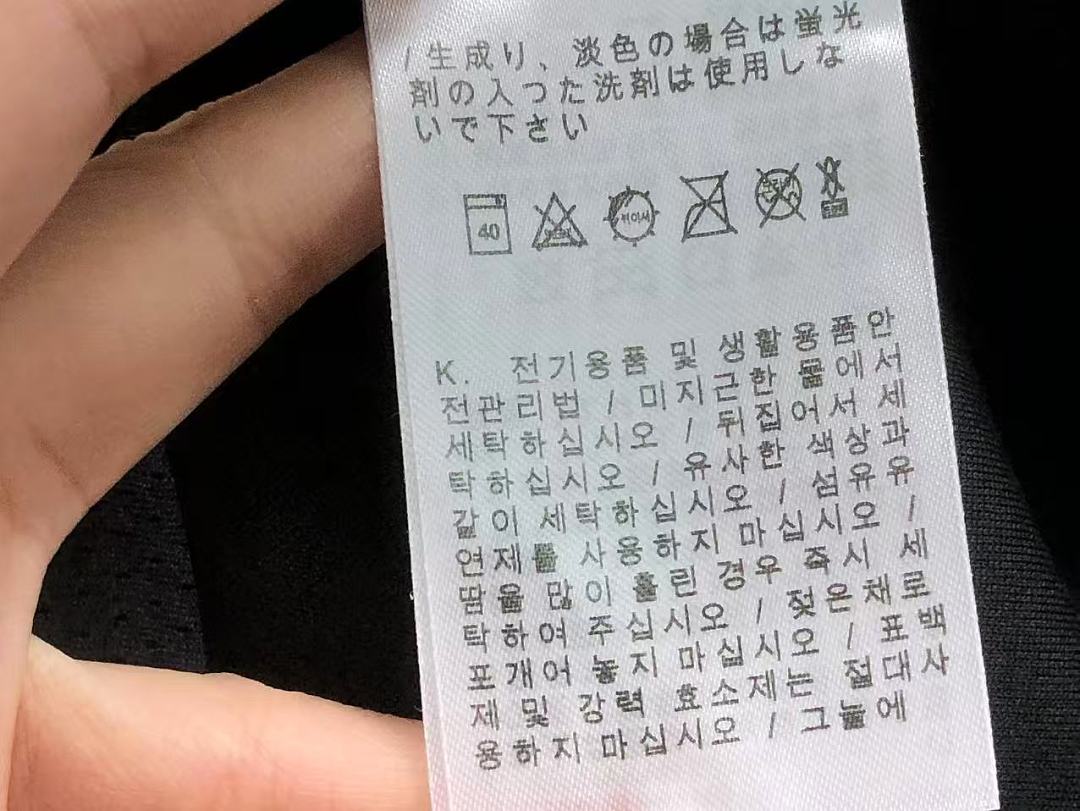 /生成り、淡色の場合は蛍光
剤の入った洗剤は使用しな
いで下さい
40
K. 전기용품 및 생활용품안
전관리법 / 미지근한 물에서
세탁하십시오 / 뒤집어서 세
탁하십시오 / 유사한 색상과
같이 세탁하십시오 / 섬유유
연제를 사용하지 마십시오 /
땀을 많이 흘린 경우 즉시 세
탁하여 주십시오 / 젖은채로
포개어 놓지 마십시오 / 표백
제 및 강력 효소제는 절대사
용하지 마십시오 / 그늘에